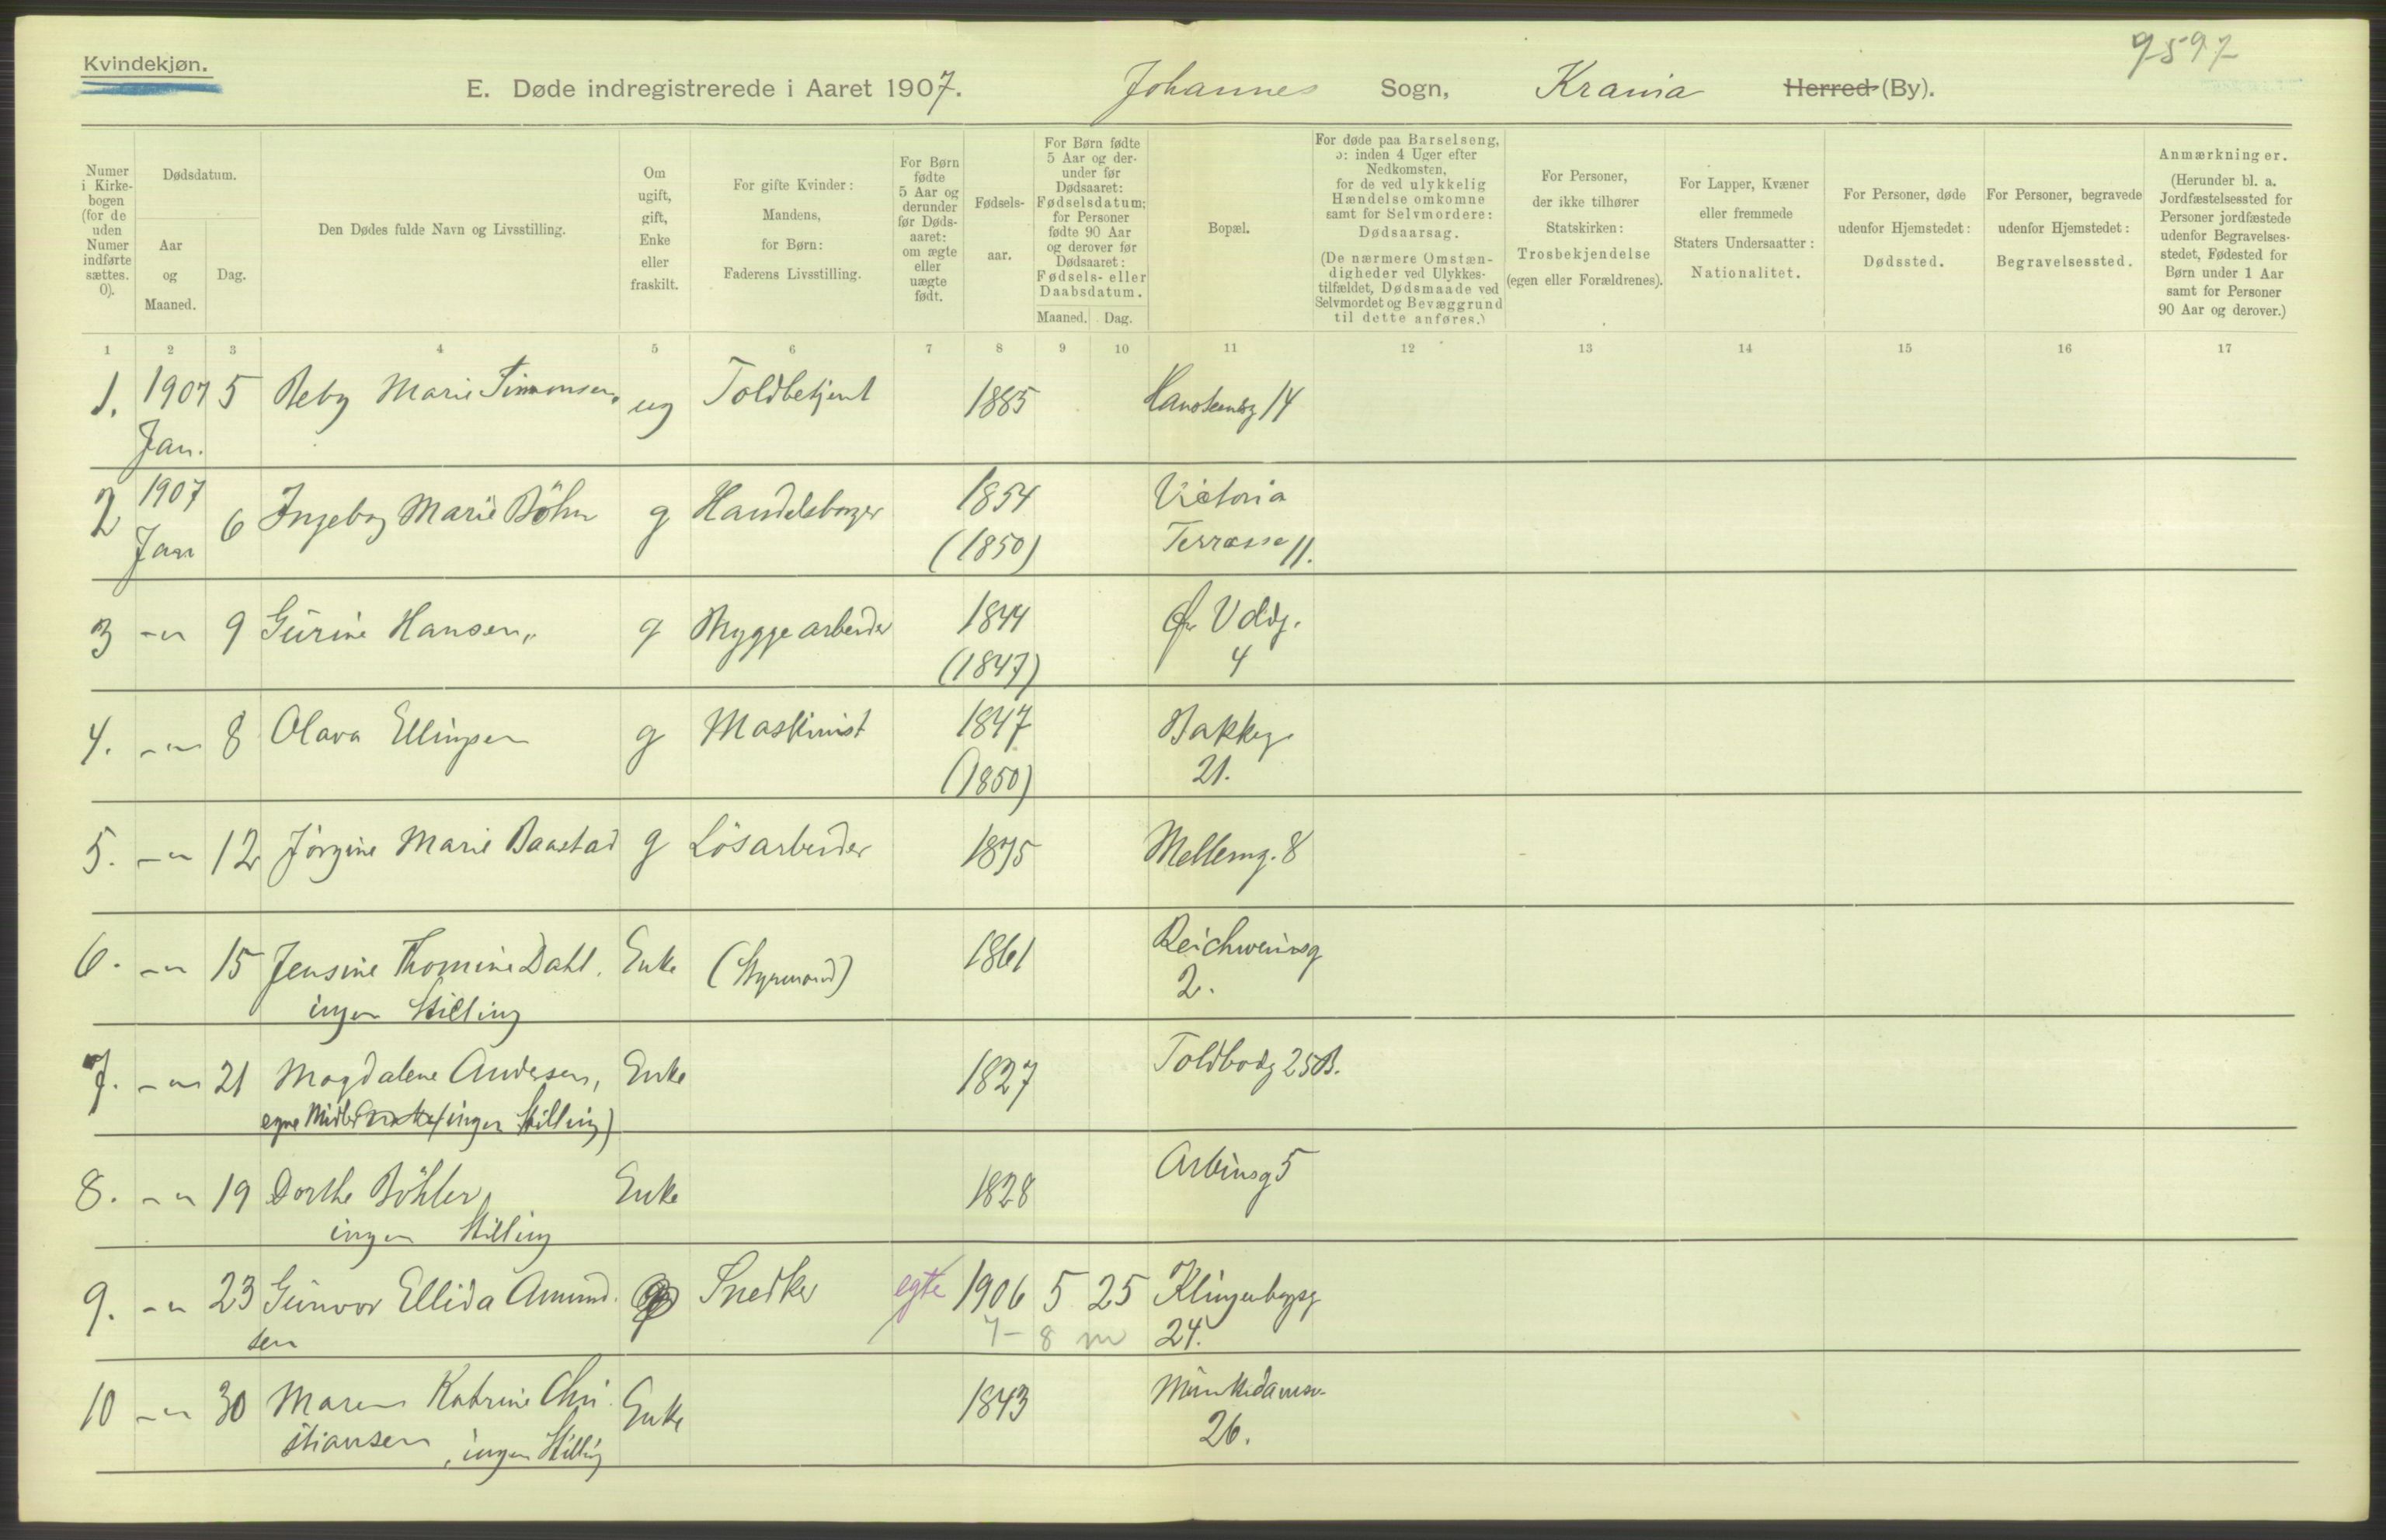 Kvindekjøn.
9597
E. Døde indregistrerede i Aaret 1907. Johannes Sogn, Krania Herred (By).
Numer i Kirke-bogen (for de uden Numer indførte sættes. 0).
Dødsdatum.
Aar og Maaned.
Dag.
Den Dødes fulde Navn og Livsstilling.
Om ugift, gift, Enke eller fraskilt.
For gifte Kvinder: Mandens, for Børn: Faderens Livsstilling.
For Børn fødte 5 Aar og derunder før Døds-aaret: om ægte eller uægte født.
Fødsels-aar.
For Børn fødte 5 Aar og der-under før Dødsaaret: Fødselsdatum; for Personer fødte 90 Aar og derover før Dødsaaret: Fødsels- eller Daabsdatum.
Maaned. Dag.
Bopæl.
For døde paa Barselseng, ɔ: inden 4 Uger efter Nedkomsten, for de ved ulykkelig Hændelse omkomne samt for Selvmordere: Dødsaarsag.
(De nærmere Omstæn-digheder ved Ulykkes-tilfældet, Dødsmaade ved Selvmordet og Bevæggrund til dette anføres.)
For Personer, der ikke tilhører Statskirken: Trosbekjendelse (egen eller Forældrenes).
For Lapper, Kvæner eller fremmede Staters Undersaatter: Nationalitet.
For Personer, døde udenfor Hjemstedet: Dødssted.
For Personer, begravede udenfor Hjemstedet: Begravelsessted.
Anmærkninger.
(Herunder bl. a. Jordfæstelsessted for Personer jordfæstede udenfor Begravelses-stedet, Fødested for Børn under 1 Aar samt for Personer 90 Aar og derover.)
1 2 3 4 5 6 7 8 9 10 11 12 13 14 15 16 17
1. 1907 5 Marie Simonsen, ug Toldbetjent 1885 14
Jan.
2 1907 6 Ingeborg Marie Böhn g Handelsborger 1854 Victoria
Jan (1850) Terrasse 11.
3 -"- 9 Gurine Hansen g Bryggearbeider 1844
(1847) 4
4. -"- 8 Olava Ellingsen g Maskinist 1847 Bakkeg.
(1850) 21.
5. -"- 12 Jörgine Marie Baastad g Lösarbeider 1875 Mellemg. 8
6. -"- 15 Jensine Thomine Dahl. Enke (Styrmand) 1861 Reichweinsg
ingen Stilling 2.
7. -"- 21 Magdalene Andersen, Enke 1827 Toldbodg 25B.
egne Midler (ingen Stilling)
8. -"- 19 Dorthe Böhler, Enke 1828 Arbinsg 5
ingen Stilling
9. -"- 23 Gunvor Ellida Amund- Snedker egte 1906 5 25 Klingenbergsg
sen 7-8 m 24.
10 -"- 30 Maren Katrine Chri- Enke 1843 Munkedamsv.
stiansen, ingen Stilling 26.